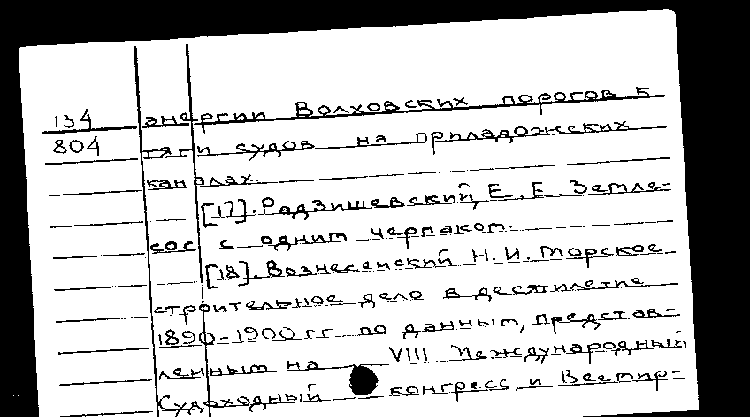 134 энергии Волховских порогов к
804 тяги судов на приладожских
каналах.
[17]. Радзишевский, Е. Е. Земле-
сос с одним черпаком.
[18]. Вознесенский Н. И. Морское
строительное дело в десятилетие
1890-1900 гг. по данным, представ-
ленным на VIII Международный
Судоходный конгресс и Всемир-